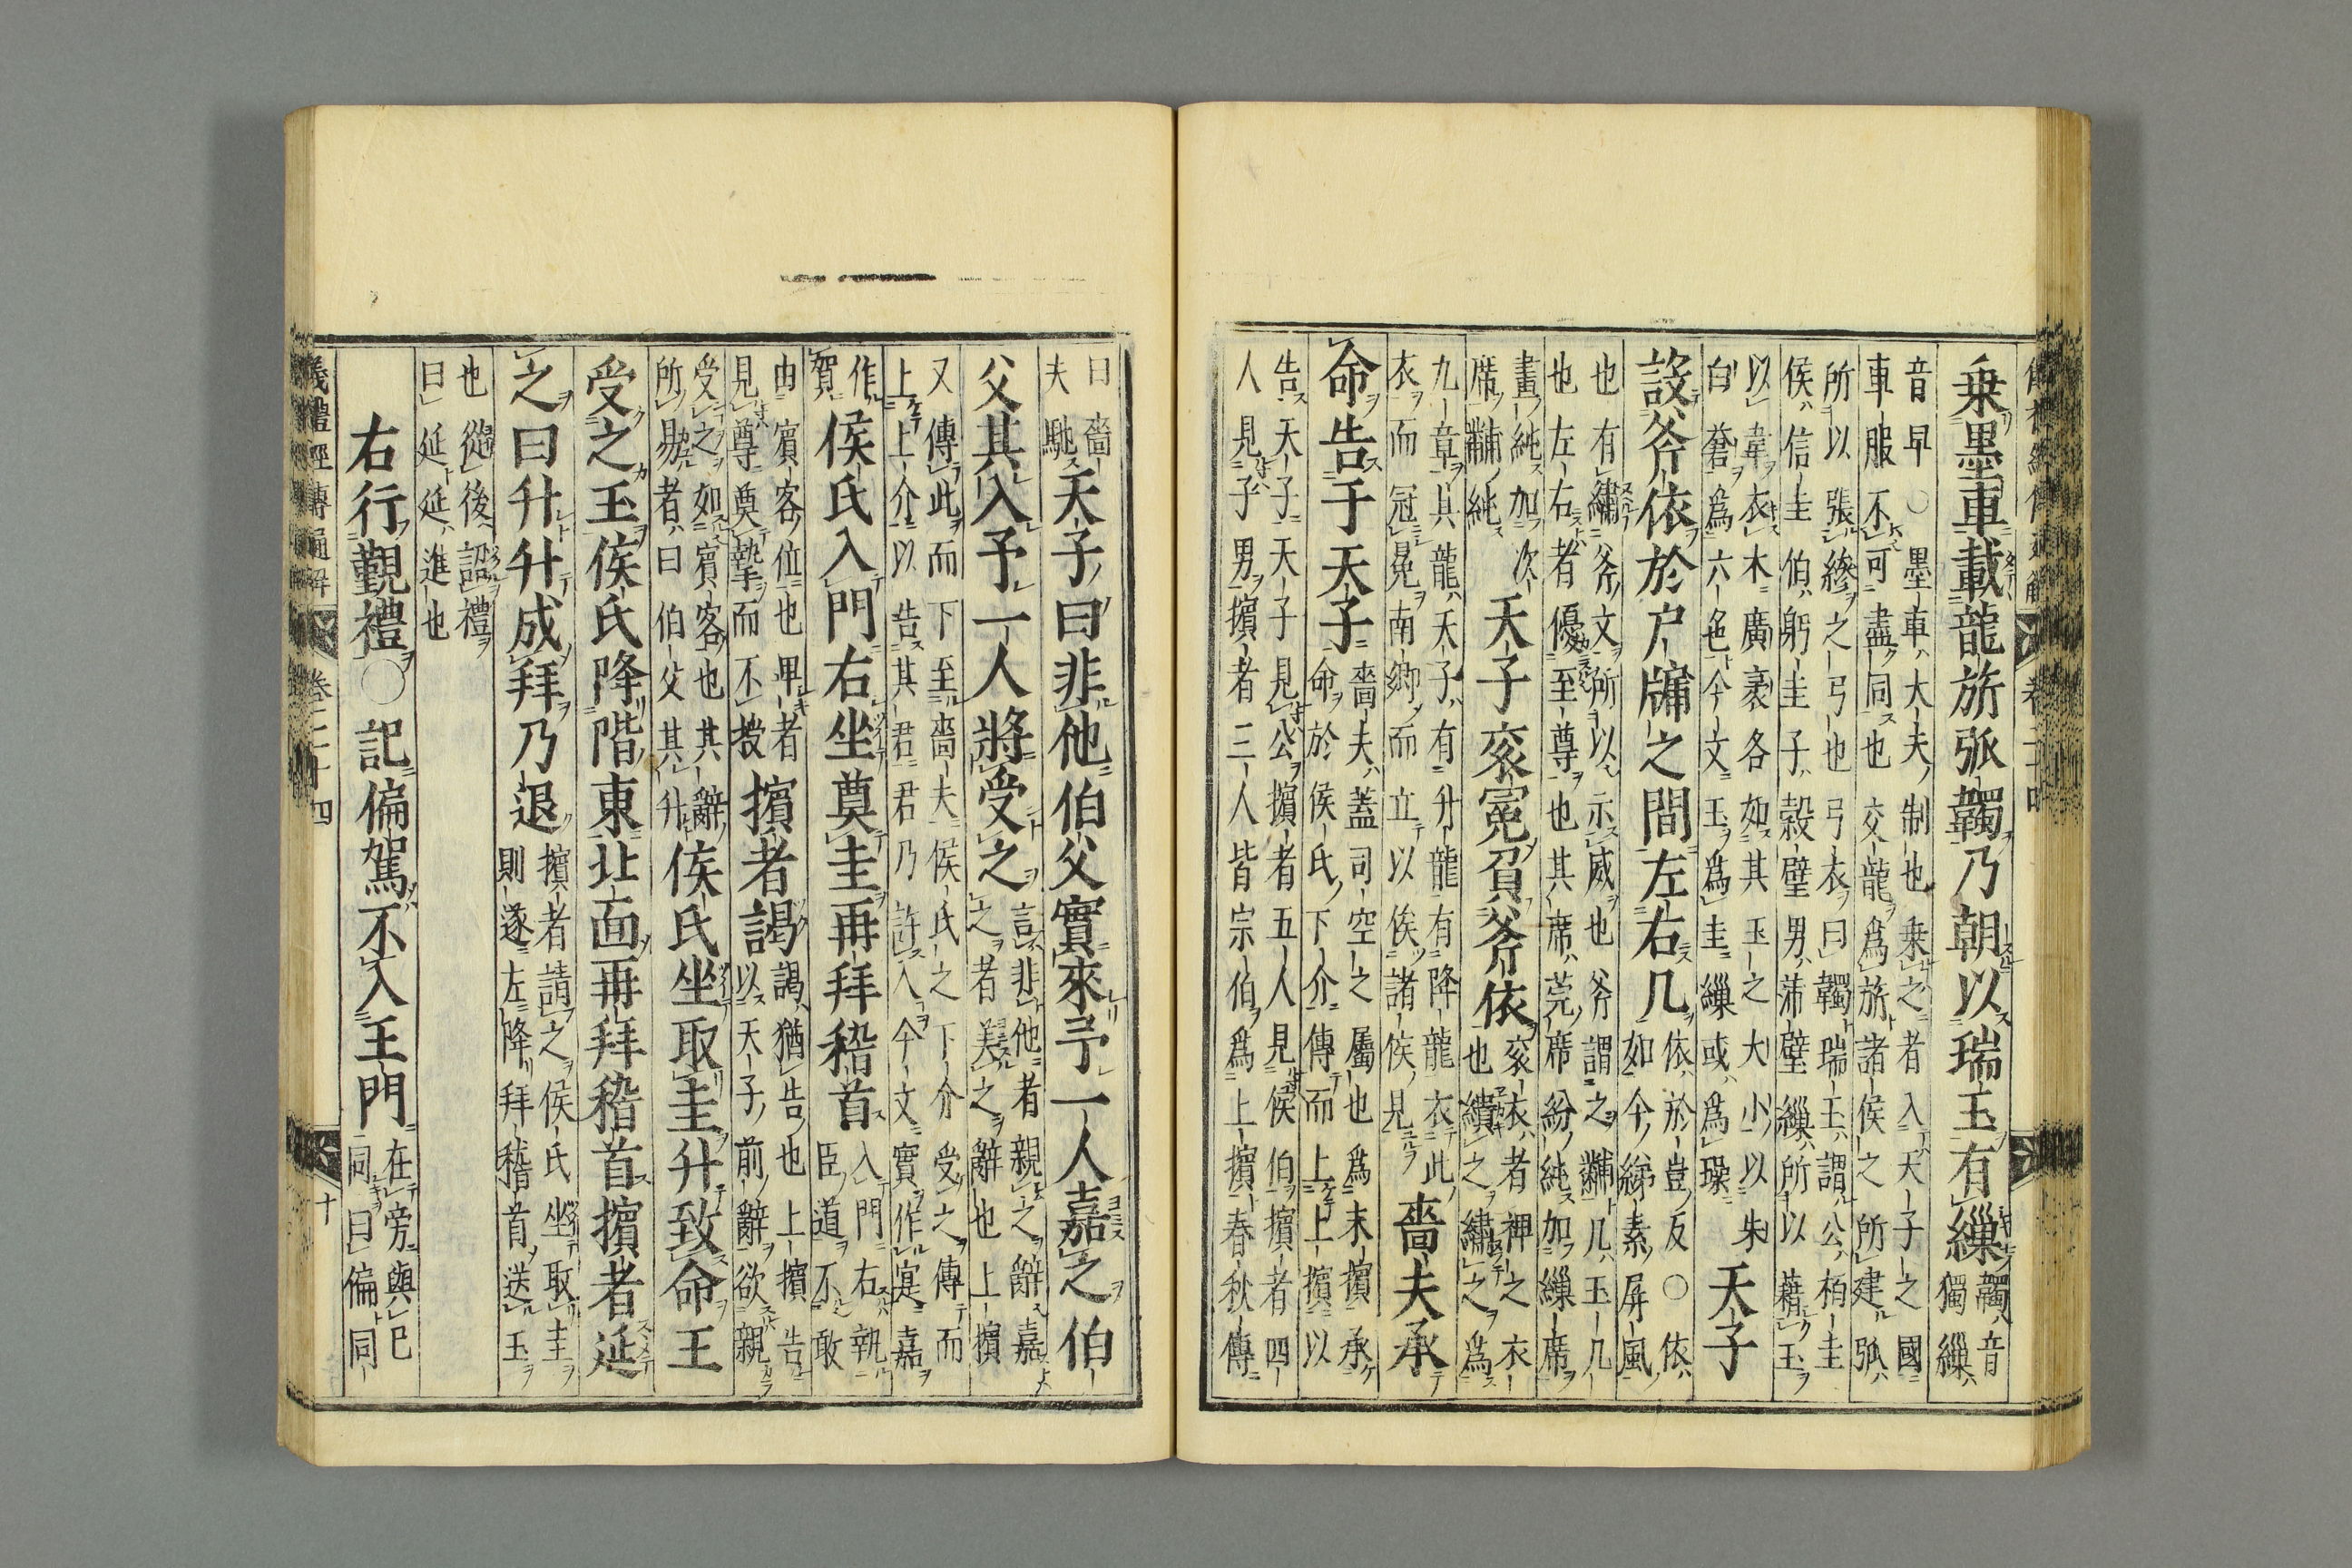 乗墨車載龍旂弧韣乃朝以瑞玉有繅
韣音
獨繅
音早○墨車大夫制也乗之者入天子之國
車服不可盡同也交龍爲旂諸侯之所建弧
所以張縿之弓也弓衣曰韣瑞玉謂公桓圭
侯信圭伯躬圭子穀璧男蒲璧繅所以藉玉
以韋衣木廣袤各如其玉之大小以朱
白蒼爲六色今文玉爲圭繅或爲璪
天子
設斧依於户牖之間左右几
依於豈反○依
如今綈素屏風
也有繡斧文所以示威也斧謂之黼几玉几
也左右者優至尊也其席莞席紛純加繅席
畫純加次
席黼純
天子衮冕負斧依
衮衣者裨之衣
也繢之繡之爲
九章其龍天子有升龍有降龍衣此
衣而冠冕南鄉而立以俟諸侯見
嗇夫承
命告于天子
嗇夫蓋司空之屬也爲末擯承
命於侯氏下介傳而上上擯以
告天子天子見公擯者五人見侯伯擯者四
人見子男擯者三人皆宗伯爲上擯春秋傳
曰嗇
夫馳
天子曰非他伯父實來予一人嘉之伯
父其入予一人將受之
言非他者親之辭嘉
之者美之辭也上擯
又傳此而下至嗇夫侯氏之下介受之傳而
上上介以告其君君乃許入今文實作寔嘉
作
賀
侯氏入門右坐奠圭再拜稽首
入門右執
臣道不敢
由賓客位也卑者
見尊奠摯而不授
擯者謁
謁猶告也上擯告
以天子前辭欲親
受之如賓客也其辭
所易者曰伯父其升
侯氏坐取圭升致命王
受之玉侯氏降階東北面再拜稽首擯者延
之曰升升成拜乃退
擯者請之侯氏坐取圭
則遂左降拜稽首送玉
也從後詔禮
曰延延進也
右行覲禮○記偏駕不入王門
在旁與已
同曰偏同
儀禮經傳通解 卷二十四 十